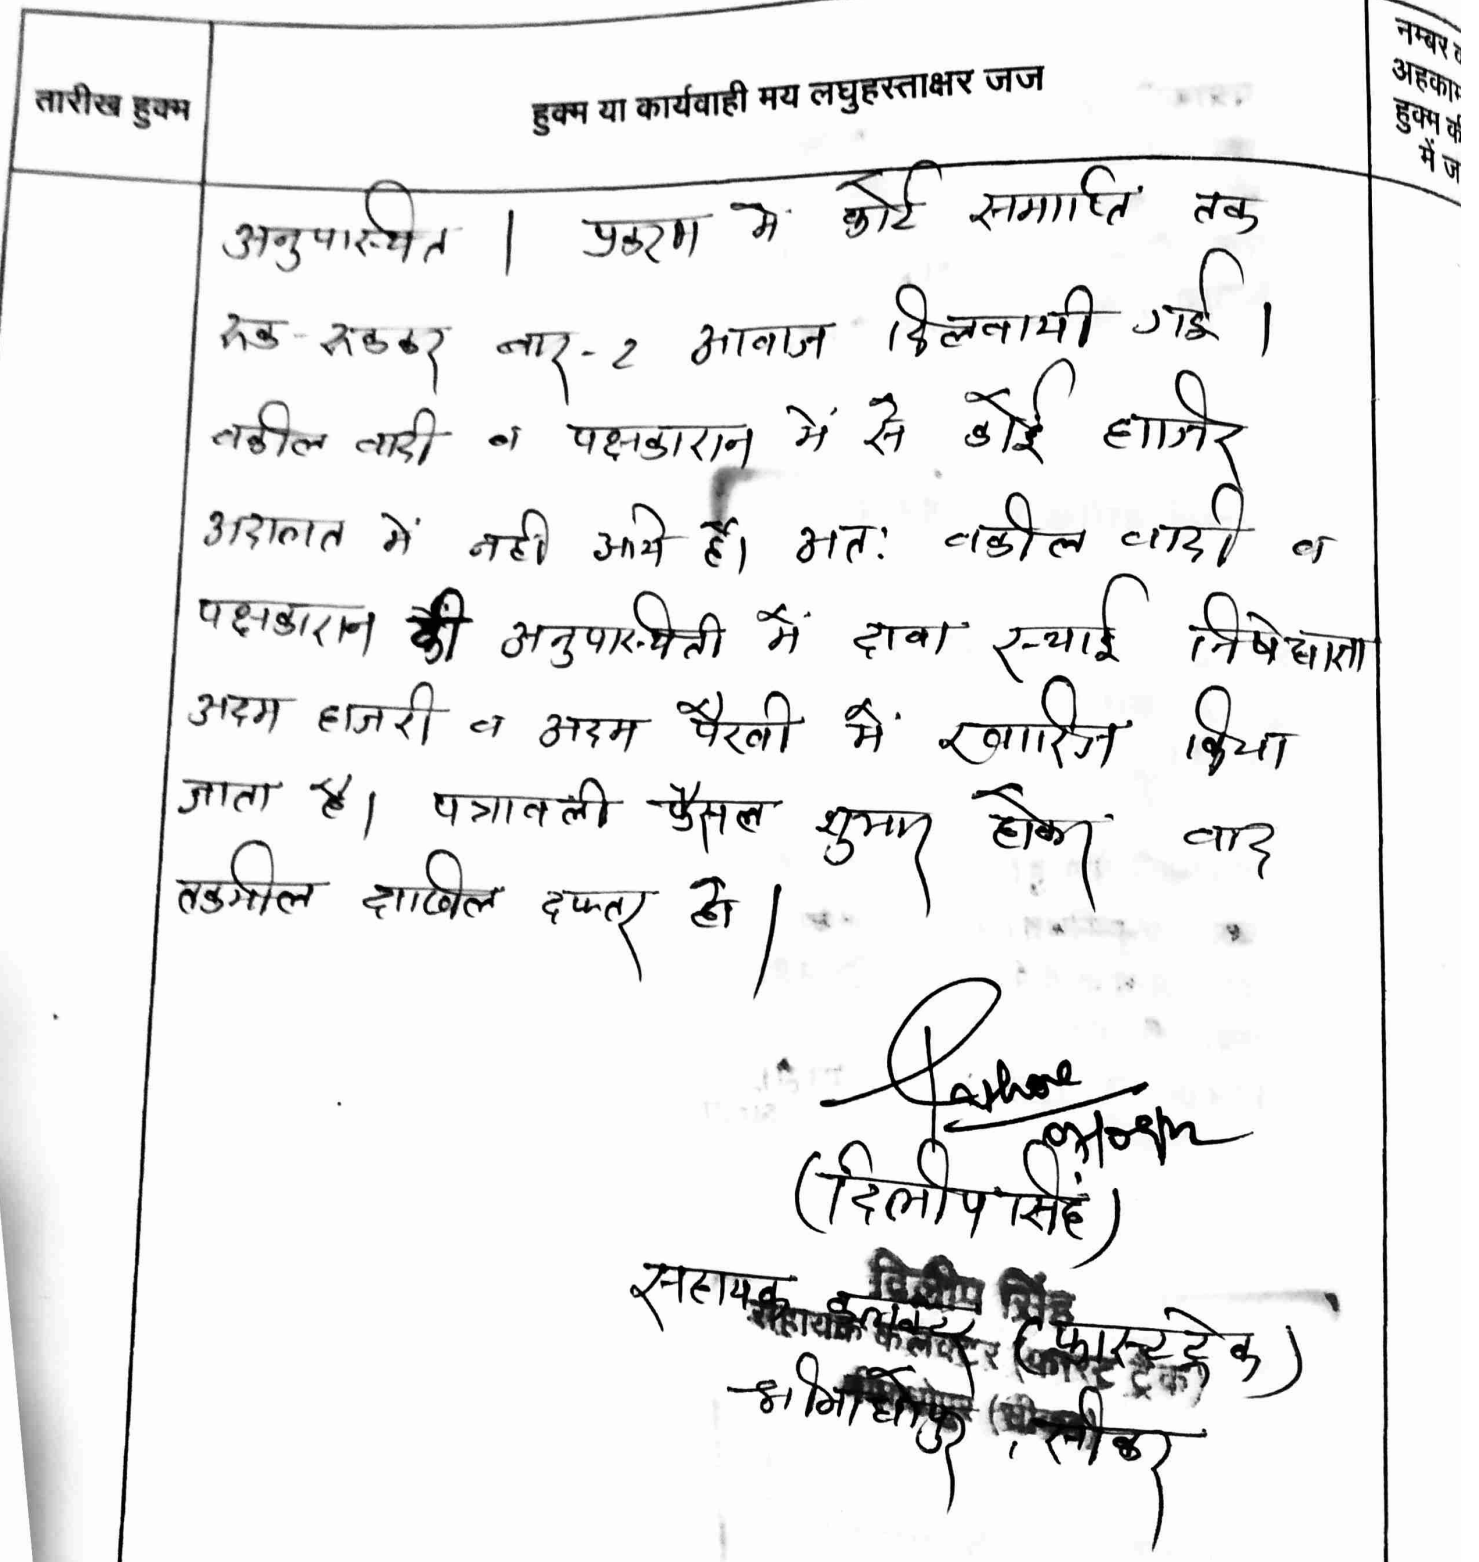 तारीख हुक्म
हुक्म या कार्यवाही मय लघुहस्ताक्षर जज
नम्बर
अहकाम
हुक्म की
में ज
अनुपस्थित । प्रकरण में कोर्ट समाप्ति तक
रूक-रूककर बार-2 आवाज दिलवायी गई ।
वकील वादी व पक्षकारान में से कोई हाजिर
अदालत में नही आये हैं। अतः वकील वादी व
पक्षकारान की अनुपस्थिती में दावा स्थाई निषेधाज्ञा
अदम हाजरी व अदम पैरवी में खारिज किया
जाता है। पत्रावली फैसल शुमार होकर बाद
तकमील दाखिल दफ्तर हो ।
(दिलीप सिंह)
दिलीप सिंह
सहायक कलक्टर (फास्ट ट्रेक)
सहायक कलक्टर (फास्ट ट्रेक)
श्रीमाधोपुर, सीकर